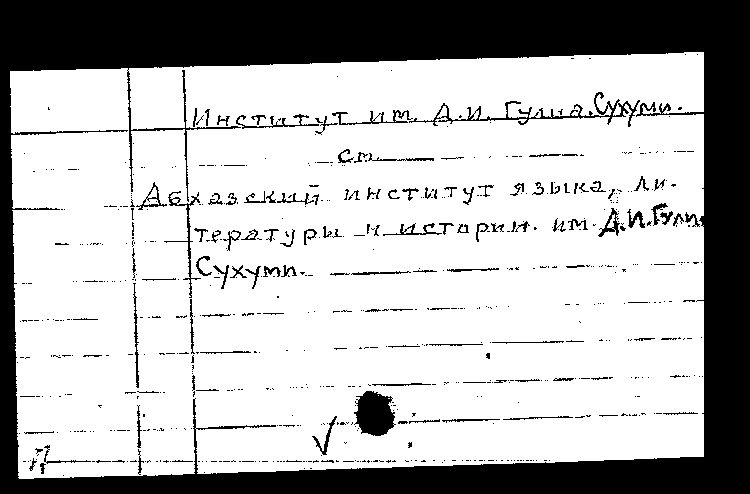 Институт им. Д.И. Гулиа. Сухуми.
см.
Абхазский институт языка, ли-
тературы и истории. им. Д.И. Гулиа
Сухуми.